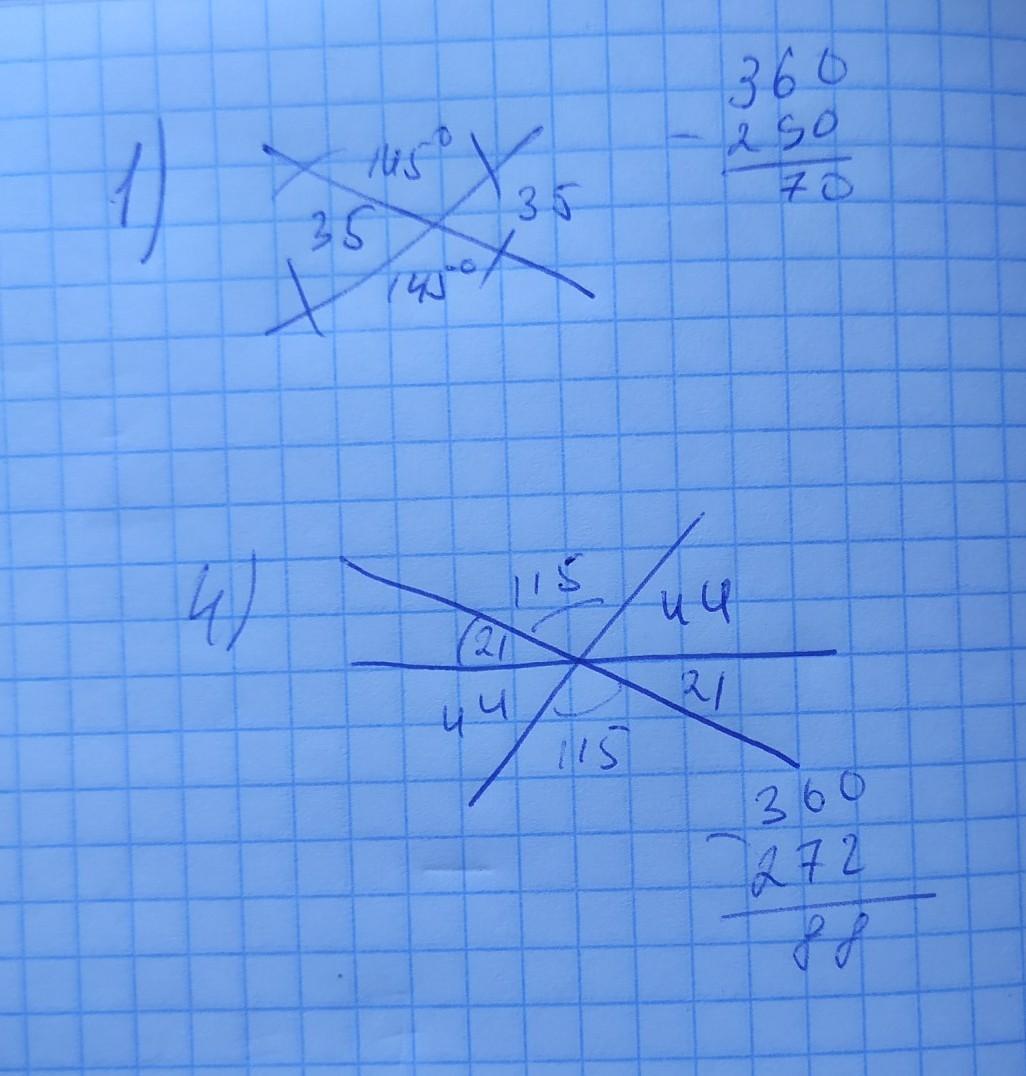 1)
145°
35
35
145°
360
- 250
70
4)
115
44
21
44
21
115
360
- 272
88